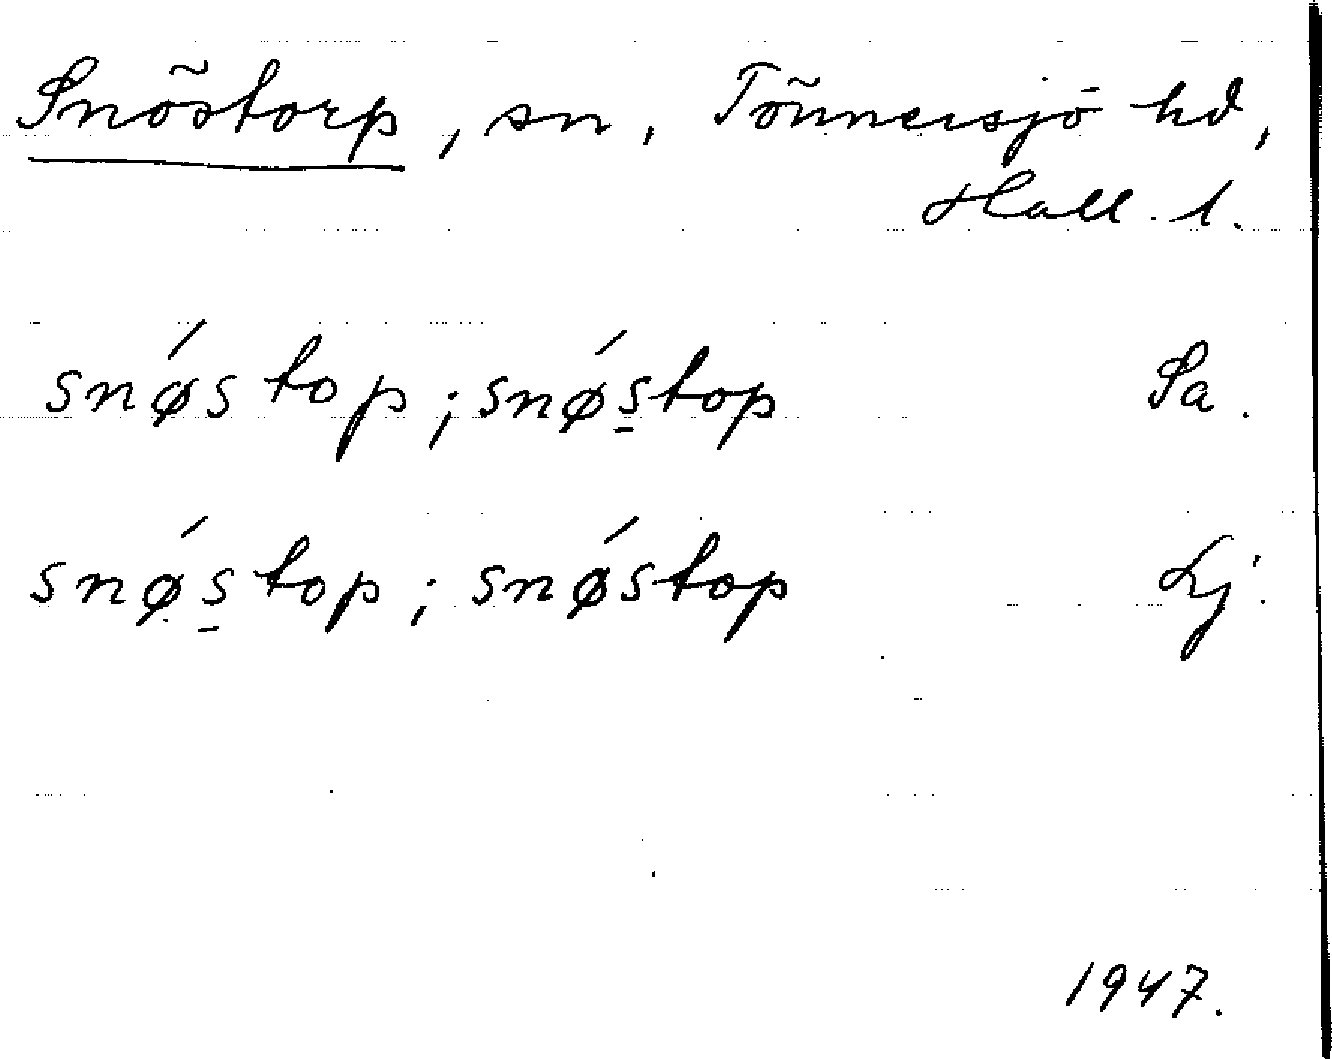 Snöstorp, sn, Tönnersjö hd,
Hall. l.
snǿstop; snǿs̲top Sa.
snǿs̲top; snǿstop Lj.
1947.